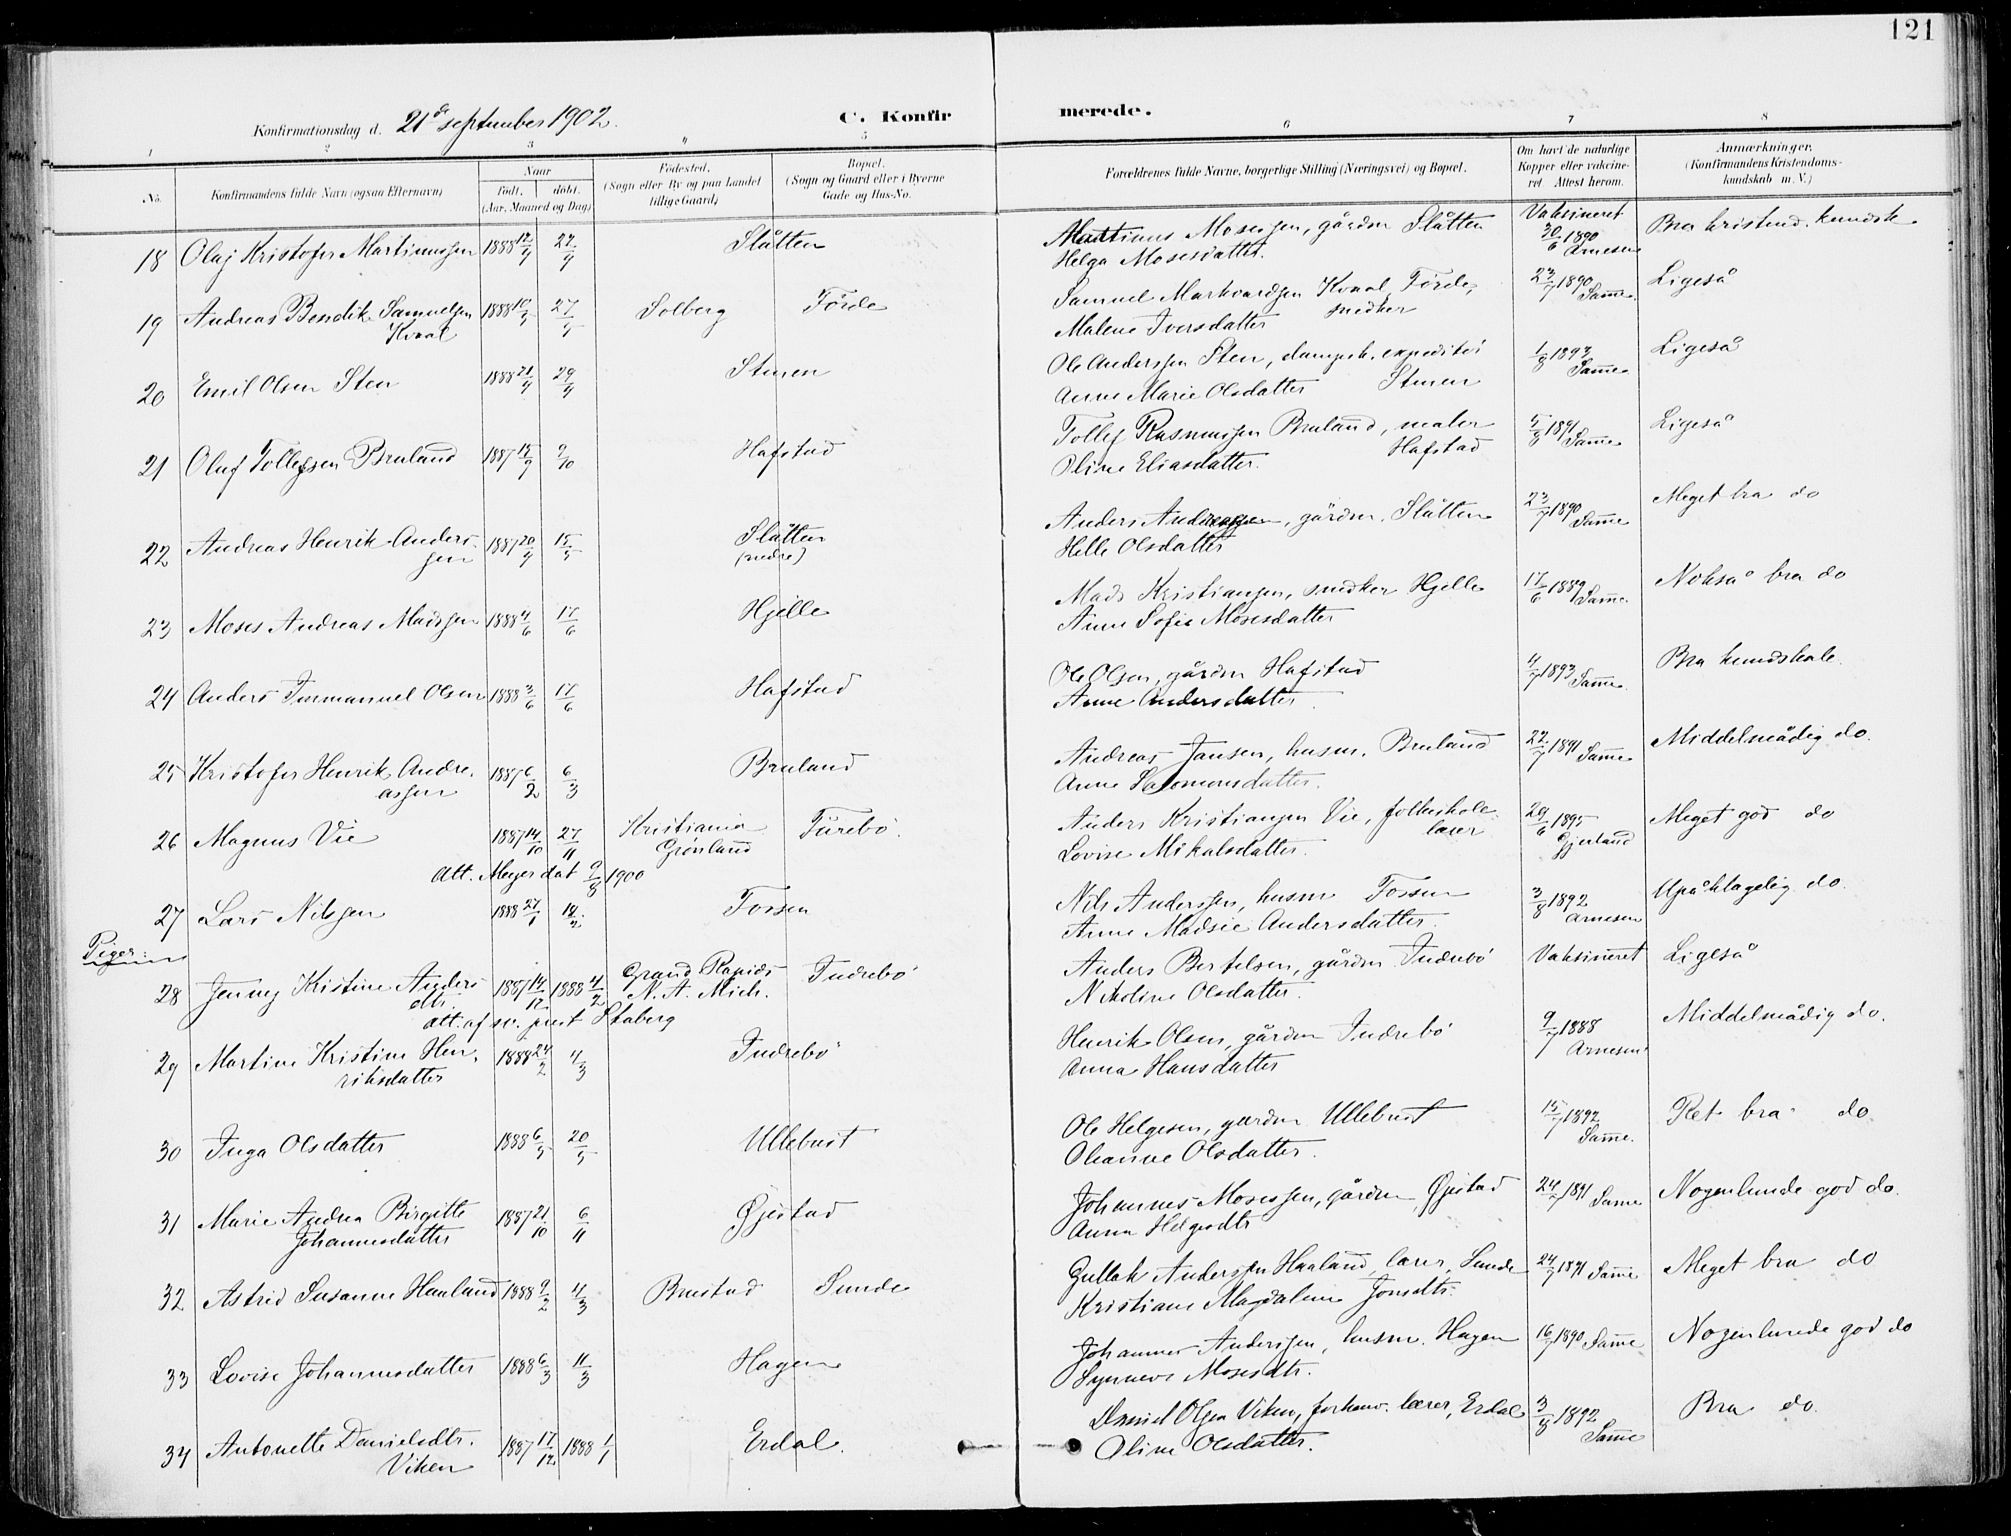 121
Konfirmationsdag d. 21de september 1902.
C. Konfirmerede.
1 2 3 4 5 6 7 8
No.
Konfirmandens fulde Navn (ogsaa Efternavn)
Naar
Født. døbt.
(Aar, Maaned og Dag)
Fødested.
(Sogn eller By og paa Landet tillige Gaard)
Bopæl.
(Sogn og Gaard eller i Byerne Gade og Hus-No.
Forældrenes fulde Navne, borgerlige Stilling (Næringsvei) og Bopæl.
Om havt de naturlige Kopper eller vaccineret Attest herom.
Anmærkninger.
(Konfirmandens Kristendomskundskab m. V.)
18 Olaf Kristofer Martinussen 1888 12/4 22/4 Slåtten Martinus Mosessen, gårdm Slåtten Vaksineret 30/6 1890 Bra kristend. kundsk
Helga Mosesdatter. Arnesen
19 Andreas Bendik Samuelsen 1888 10/5 27/5 Solberg Førde Samuel Markvardsen Kvaal, Førde, 23/7 1890 Ligeså
Kvaal Malene Iversdatter snedker Samme.
20 Emil Olsen Sten 1888 21/4 29/4 Steien Ole Anderssen Sten, dampsk. expeditør 1/8 1893 Ligeså
Anne Marie Olsdatter Samme
21 Oluf Tollefsen Bruland 1887 15/9 9/10 Hafstad Tollef Rasmussen Bruland, maler 5/8 1891 Ligeså
Oline Eliasdatter. Hafstad Samme
22 Andreas Henrik Anders- 1887 20/4 15/5 Slåtten Anders Andreassen, gårdm. Slåtten 23/7 1890 Meget bra do
sen (nedre) Helle Olsdatter Samme
23 Moses Andreas Madssen 1888 4/6 17/6 Hjelle Mads Kristiansen, snedker Hjelle 17/6 1889 Nokså bra do
Anne Sofie Mosesdatter Samme.
24 Anders Immanuel Olsen 1888 3/6 17/6 Hafstad Ole Olsen, gårdm Hafstad 4/7 1893 Bra kundskab.
Anne Andersdatter Samme.
25 Kristofer Henrik Andre- 1887 6/2 6/3 Bruland Andreas Jansen, husm. Bruland 22/7 1891 Middelmådig do.
assen Anne Salomonsdatter. Samme
26 Magnus Vie 1887 14/10 27/11 Kristiania Førebø. Anders Kristiansen Vie, folkeskole- 29/6 1895 Meget god do
Grønland lærer
Lovise Mikalsdatter. Gjerland
Att. Meyer dat 9/8 1900
27 Lars Nilssen 1888 27/1 12/2 Fossen Nils Anderssen, husm Fossen 3/8 1892 Upåklagelig do.
Anne Madsie Andersdatter. Arnesen
Piger:
28 Jenny Kristine Anders- 1887 14/12 1888 4/2 Grand Rapids Indrebø Anders Bertelsen, gårdm Indrebø Vaksineret Ligeså
dtr. N. A. Mich. Nikoline Olsdatter.
att. af sv. prest Staberg
29 Martine Kristine Hen- 1888 24/2 4/3 Indrebø Henrik Olsen, gårdm Indrebø 9/7 1888 Middelmådig do.
riksdatter Anna Hansdatter Arnesen
30 Inga Olsdatter 1888 6/5 20/5 Ullebust Ole Helgesen, gårdm Ullebust 15/7 1892 Ret bra do
Oleanne Olsdatter. Samme.
31 Marie Andrea Birgitte 1887 21/10 6/11 Øjestad Johannes Mosessen, gårdm Øjestad 24/7 1891 Samme Nogenlunde god do.
Johannesdatter Anna Helgesdtr
32 Astrid Susanne Haaland 1888 9/2 4/3 Brustad Sunde Gullak Anderssen Haaland, lærer, Sunde 24/7 1891 Samme Meget bra do
Kristiane Magdalene Jonsdtr.
33 Lovise Johannesdatter 1888 6/3 11/3 Hagen Johannes Anderssen, husm. Hagen 16/7 1890 Samme Nogenlunde god do
Synneve Mosesdtr.
34 Antonette Danielsdtr. 1887 17/12 1888 1/1 Erdal. Daniel Olsen Viken, forhenv. lærer, Erdal 3/8 1892 Bra do.
Viken Oline Olsdatter. Samme